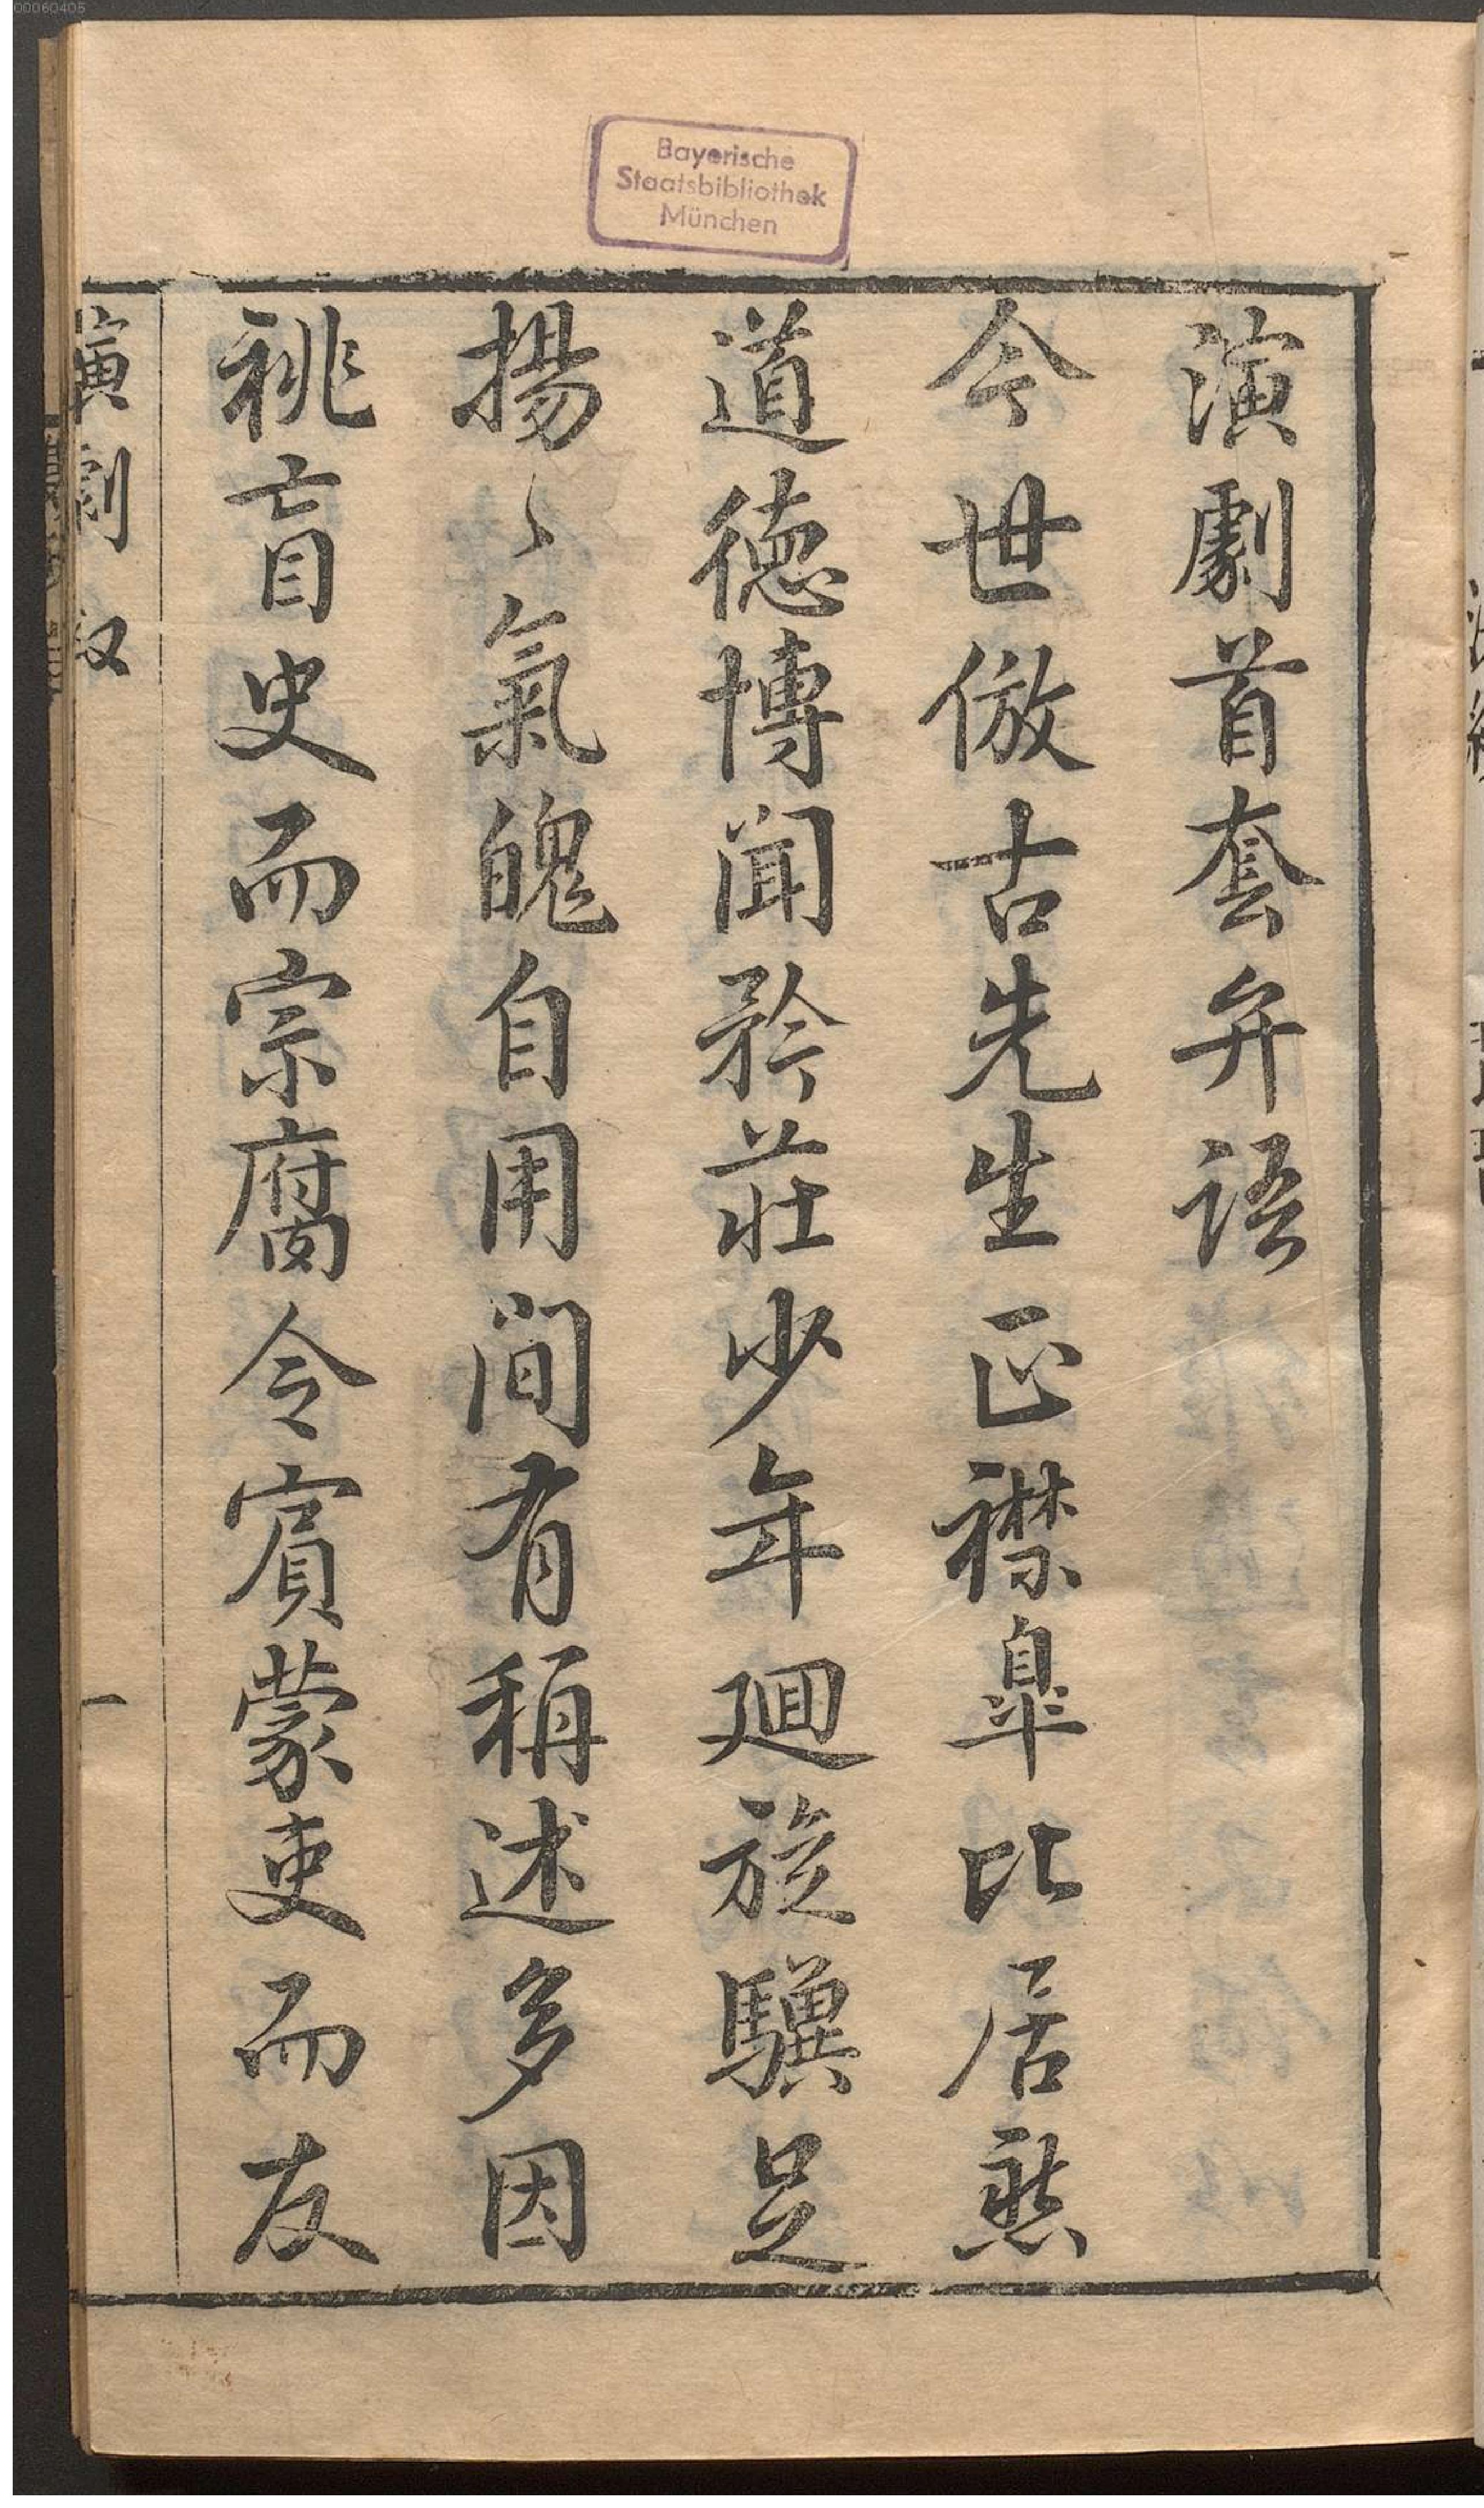 00060405
Bayerische
Staatsbibliothek
München
演劇首套弁语
今世倣古先生正襟臯比居然
道德博闻矜莊少年廻旋驥足
揚〻氣魄自用间有稱述多因
祧盲史而宗腐令賓蒙吏而友
演劇叙
一